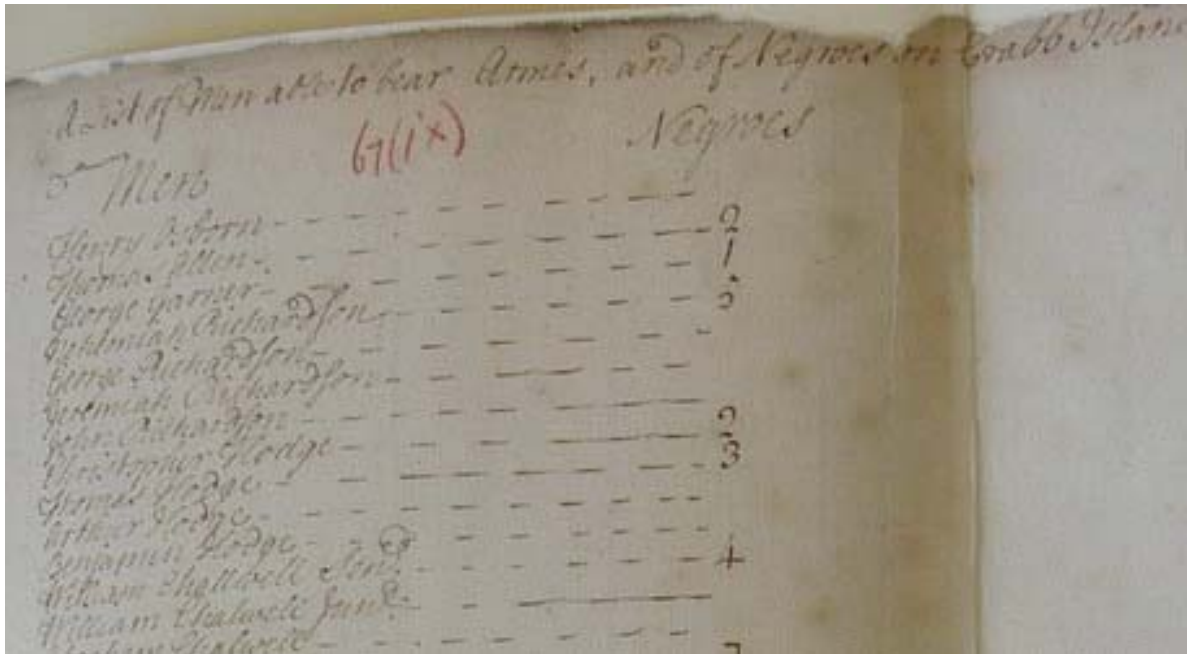 A List of Men able to bear Armes, and of Negroes on Crabb Islan
67(ix)
Negroes
Men
Henry Osborn
Thomas Allen 2
George Garner 1
Richardson 2
George Richardson
Jeremiah Richardson
John Richardson
Christopher Hodge 2
Thomas Hodge 3
Arthur Hodge
Benjamin Hodge
William Chalwell Senr. 4
William Chalwell Junr.
Chalwell